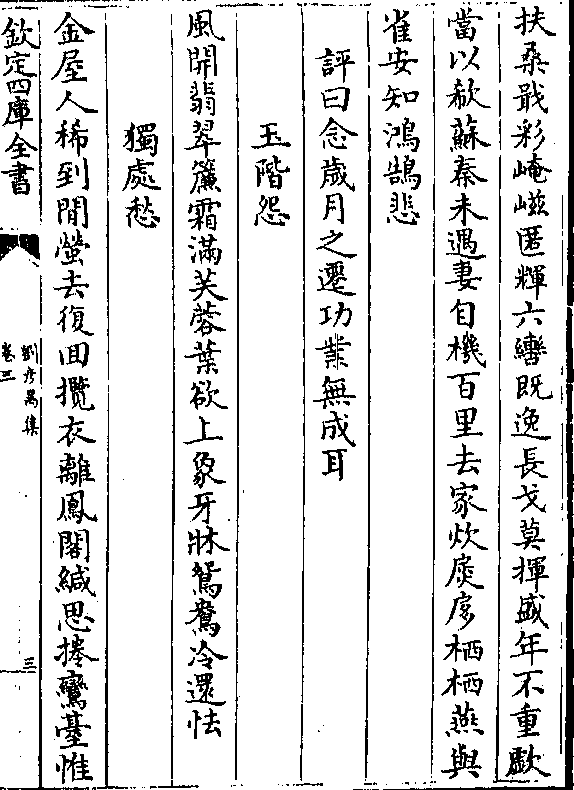 扶桑戢彩崦嵫匿輝六轡既逸長戈莫揮盛年不重歔
當以欷蘇秦未遇妻自機百里去家炊扊扅栖栖燕與
雀安知鴻鵠悲
評曰念歲月之遷功業無成耳
玉階怨
風開翡翠簾霜滿芙蓉葉欲上象牙牀鴛鴦冷還怯
獨處愁
金屋人稀到閒螢去復回攬衣離鳳閣緘思捲鸞臺惟
欽定四庫全書
劉彥昺集
卷三
三